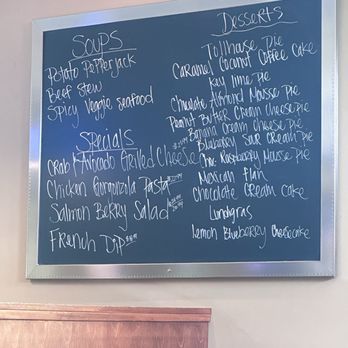 Soups
Potato Pepperjack
Beef Stew
Spicy Veggie Seafood
Specials
Crab / Avocado Grilled Cheese
Chicken Gorgonzola Pasta
Salmon Berry Salad
French Dip
Desserts
Tollhouse Pie
Caramel Coconut Coffee Cake
Key lime Pie
Chocolate Almond Mousse Pie
Peanut Butter Cream Cheese Pie
Banana Cream Cheese Pie
Blueberry Sour Cream Pie
Choc Raspberry Mousse Pie
Mexican Flan
Chocolate Cream Cake
Lundgras
Lemon Blueberry Cheesecake